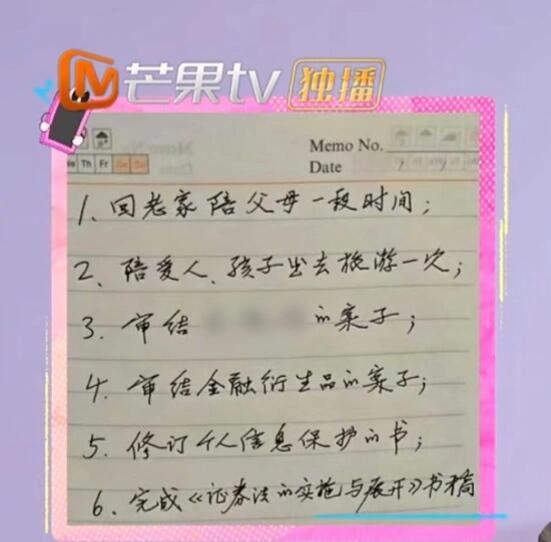 芒果tv 独播
Memo No.
Th Fr Sa Su
Date / /
1、回老家陪父母一段时间;
2、陪爱人、孩子出去旅游一次;
3、审结 的案子;
4、审结金融衍生品的案子;
5、修订个人信息保护的书;
6、完成《证券法的实施与展开》书稿